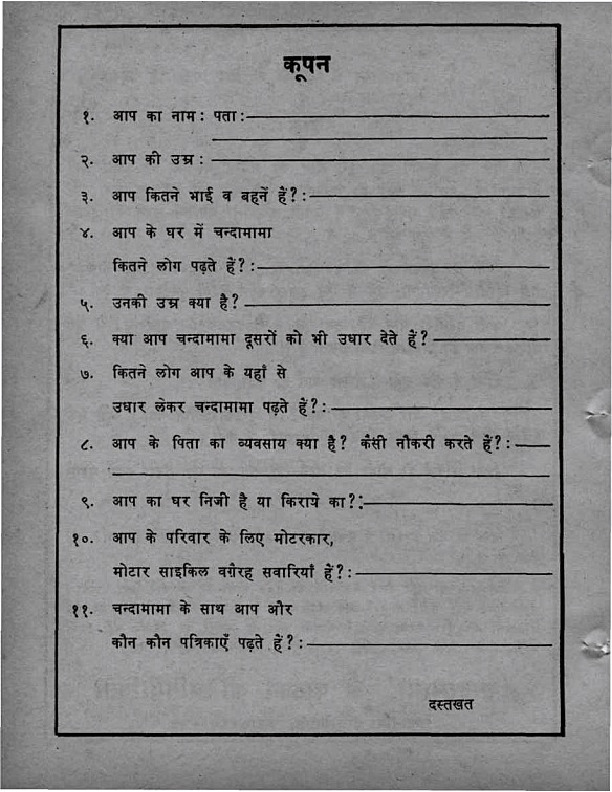 कूपन
१. आप का नाम: पता:
२. आप की उम्र:
३. आप कितने भाई व बहनें हैं?:
४. आप के घर में चन्दामामा
कितने लोग पढ़ते हैं?:
५. उनकी उम्र क्या है?
६. क्या आप चन्दामामा दूसरों को भी उधार देते हैं?
७. कितने लोग आप के यहाँ से
उधार लेकर चन्दामामा पढ़ते हैं?:
८. आप के पिता का व्यवसाय क्या है? कैसी नौकरी करते हैं?:
९. आप का घर निजी है या किराये का?:
१०. आप के परिवार के लिए मोटरकार,
मोटार साइकिल वग़ैरह सवारियाँ हैं?:
११. चन्दामामा के साथ आप और
कौन कौन पत्रिकाएँ पढ़ते हैं?:
दस्तखत